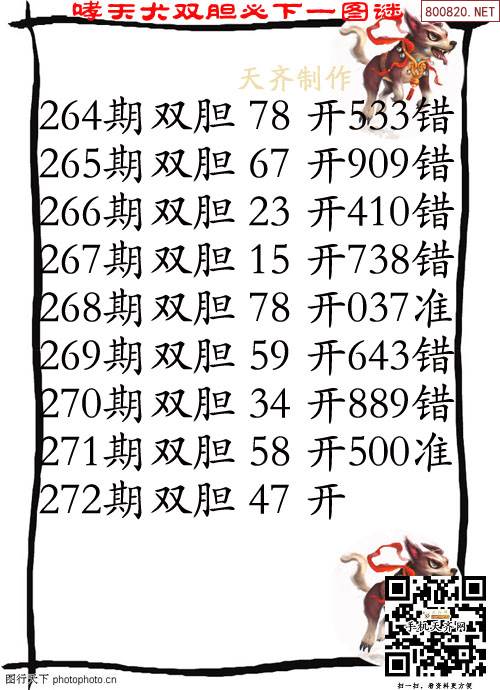 哮天犬双胆必下一图谜
800820.NET
天齐制作
264期 双胆 78 开533错
265期 双胆 67 开909错
266期 双胆 23 开410错
267期 双胆 15 开738错
268期 双胆 78 开037准
269期 双胆 59 开643错
270期 双胆 34 开889错
271期 双胆 58 开500准
272期 双胆 47 开
手机天齐网
扫一扫，看资料更方便
图行天下 photophoto.cn